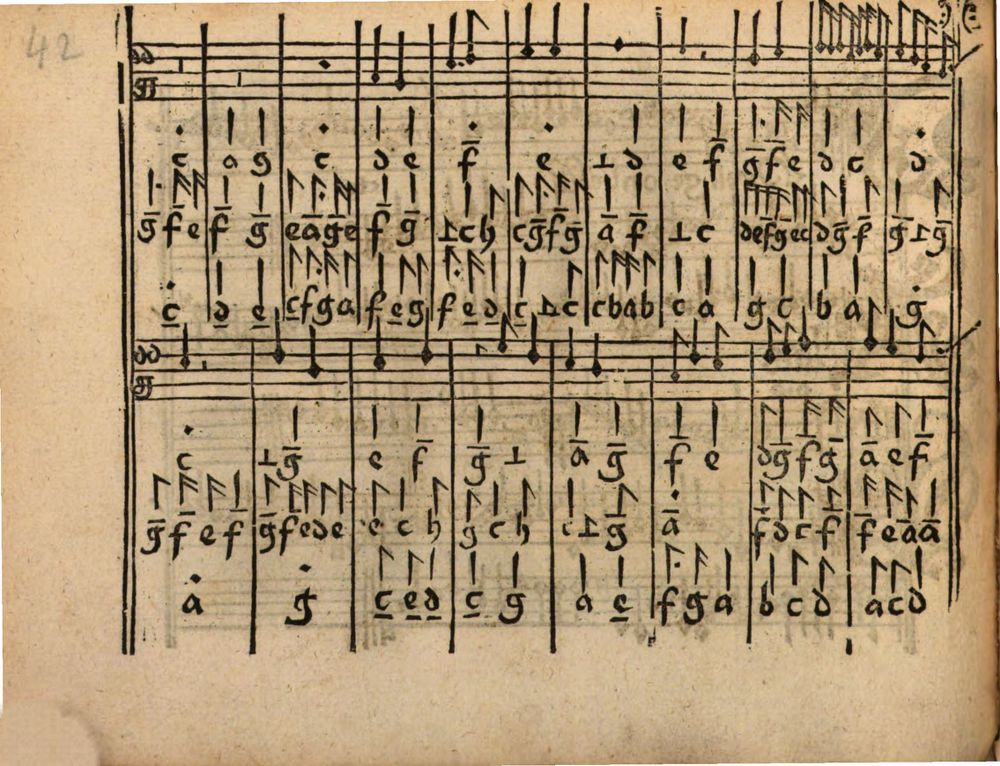 42
c a g c d e f e ⊥ d e f g f e d c d
g f e f g e a g e f g ⊥ c h c g f g a f ⊥ c d e f g e c d g f g ⊥ g
c d e c f g a f e g f e d c ⊥ c c b a b c a g c b a g
c ⊥ g e f g ⊥ a g f e d g f g a e f
g f e f g f e d e e c h g c h ⊥ g a f d c f f e a a
a g c e d c g a e f g a b c d a c d